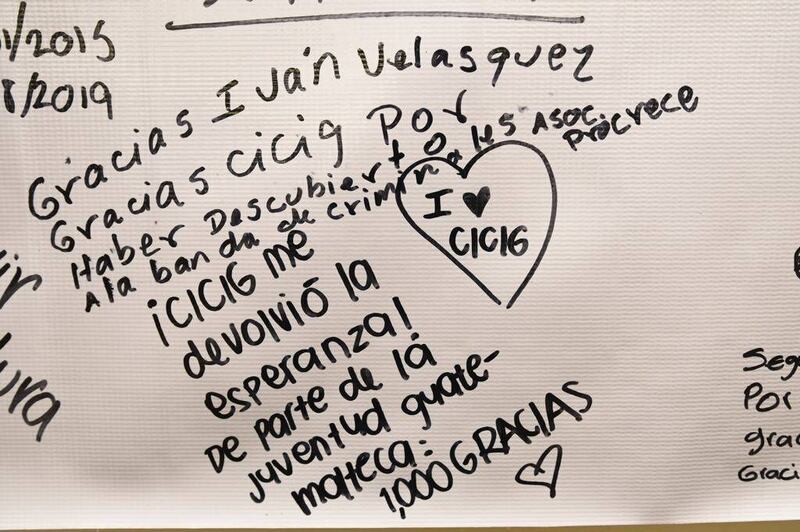 /2015
/2019
Gracias Iván Velasquez
Gracias cicig Por
Haber Descubierto
A la banda de criminales Asoc.
procrece
I ♥
CICIG
¡CICIG me
devolvió la
esperanza!
De parte de la
juventud guate-
malteca:
1,000 GRACIAS
Por
Graci